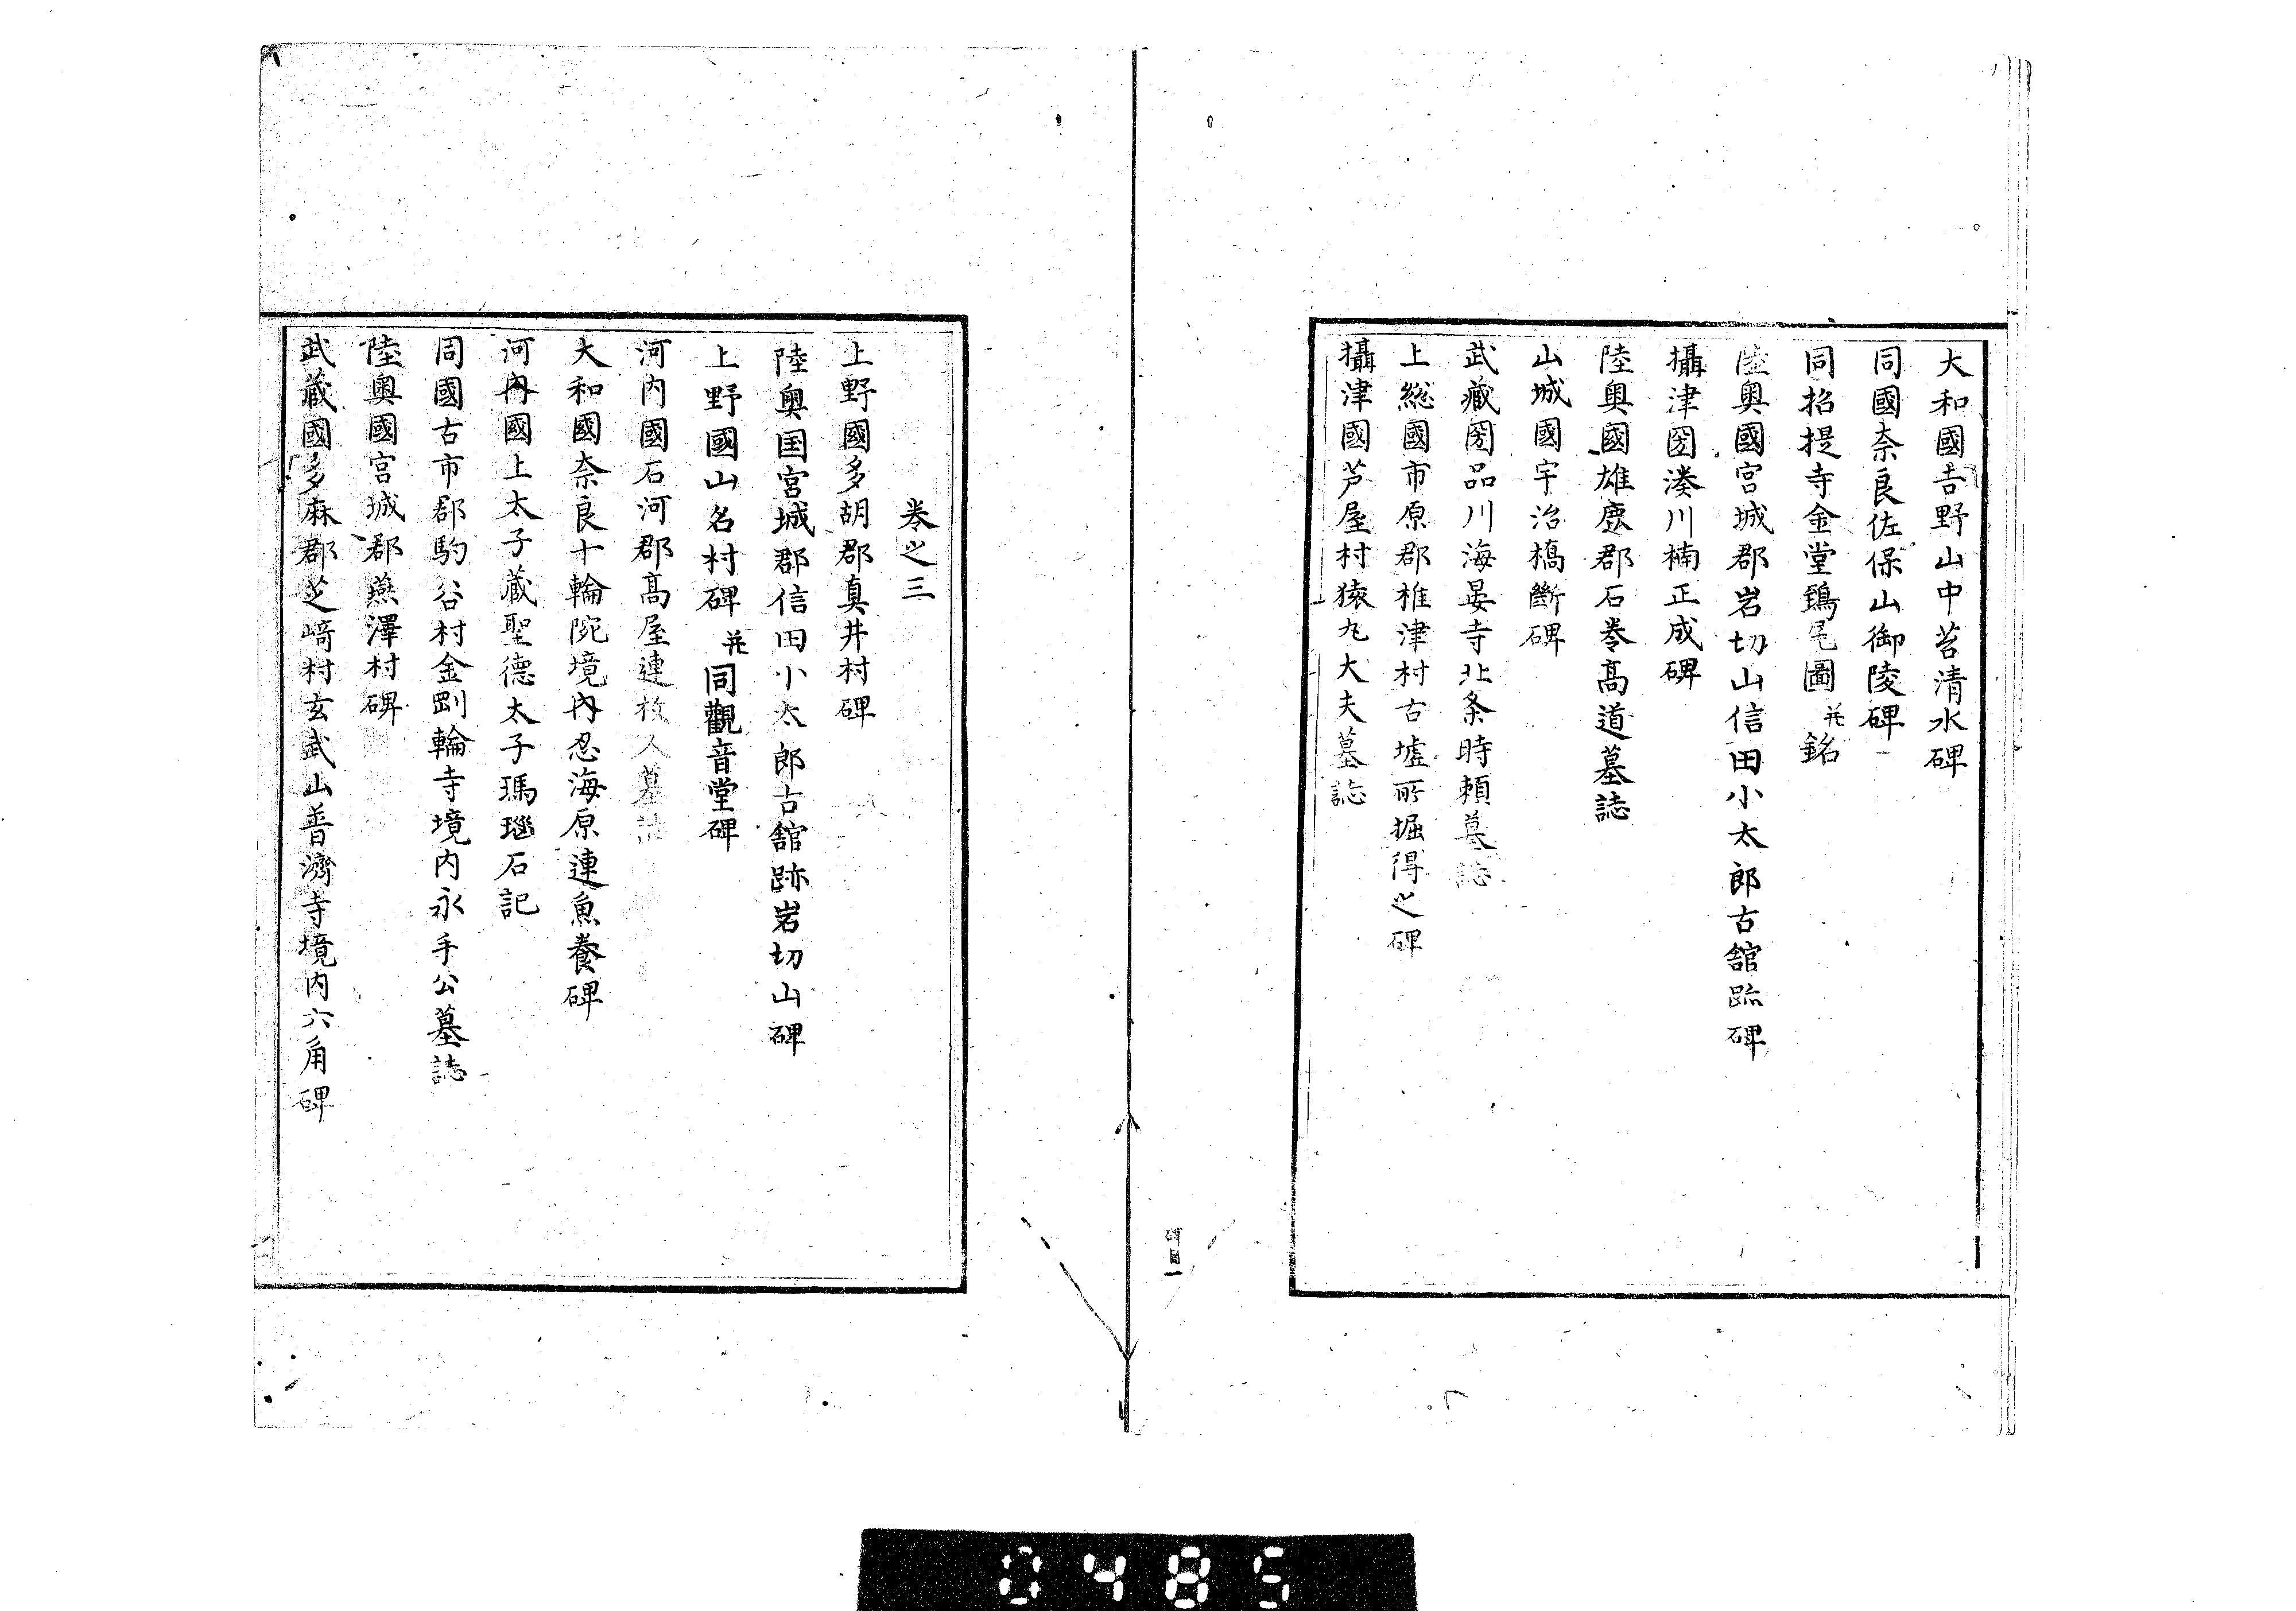 大和國吉野山中苔清水碑
同國奈良佐保山御陵碑
同招提寺金堂鴟尾圖并銘
陸奥國宮城郡岩切山信田小太郎古舘跡碑
攝津圀湊川楠正成碑
陸奥國雄鹿郡石巻髙道墓誌
山城國宇治橋斷碑
武蔵圀品川海晏寺北条時頼墓誌
上総國市原郡椎津村古墟所掘得之碑
攝津國芦屋村猿丸大夫墓誌
碑目一
巻之三
上野國多胡郡真井村碑
陸奥国宮城郡信田小太郎古舘跡岩切山碑
上野國山名村碑并同觀音堂碑
河内國石河郡髙屋連枚人墓誌
大和國奈良十輪院境内忍海原連魚養碑
河内國上太子蔵聖徳太子瑪瑙石記
同國古市郡駒谷村金剛輪寺境内永手公墓誌
陸奥國宮城郡燕澤村碑
武蔵國多麻郡芝﨑村玄武山普濟寺境内六角碑
0485